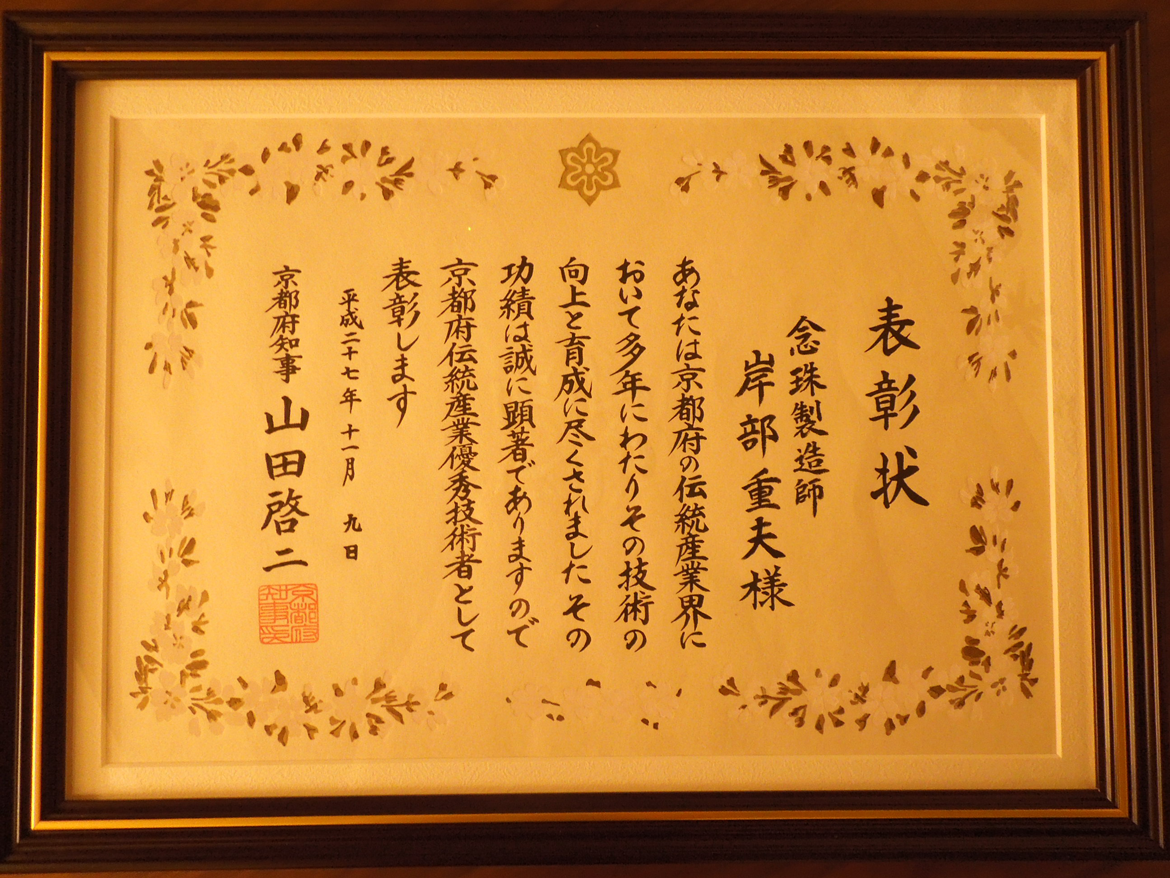 表彰状
念珠製造師
岸部重夫様
あなたは京都府の伝統産業界に
おいて多年にわたりその技術の
向上と育成に尽くされました その
功績は誠に顕著でありますので
京都府伝統産業優秀技術者として
表彰します
平成二十七年 十一月 九日
京都府知事 山田啓二
京都府
知事之